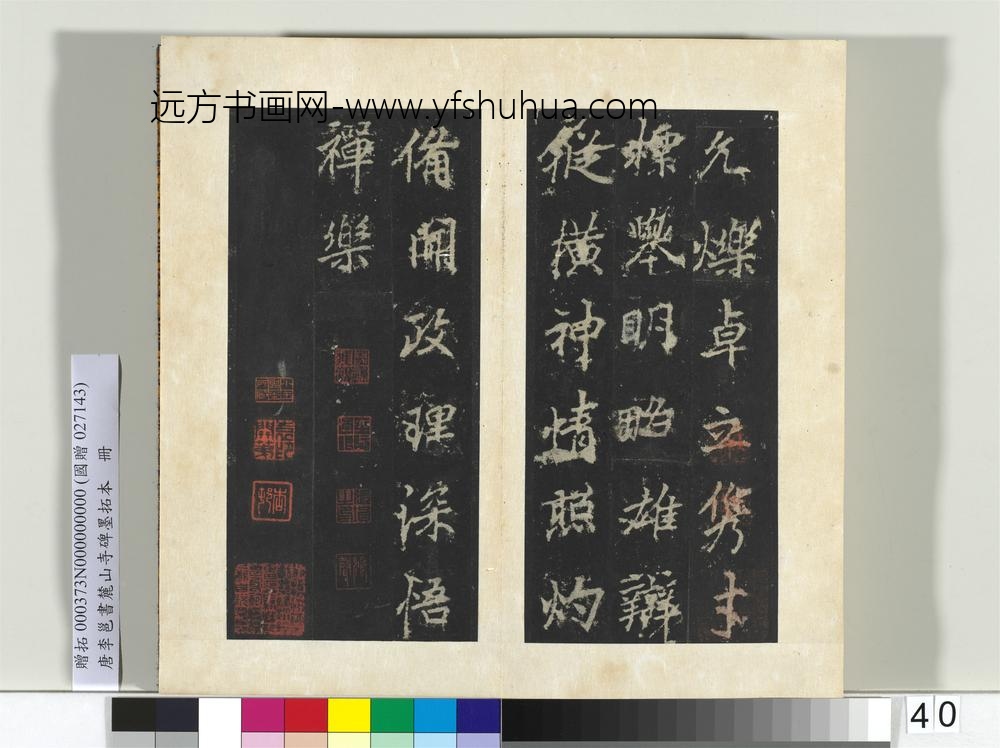 远方书画网-www.yfshuhua.com
允爍卓立雋才
標舉明略雄辯
縱橫神情照灼
備聞政理深悟
禪樂
贈拓 000373N000000000 (國贈 027143)
唐李邕書麓山寺碑墨拓本 冊
40